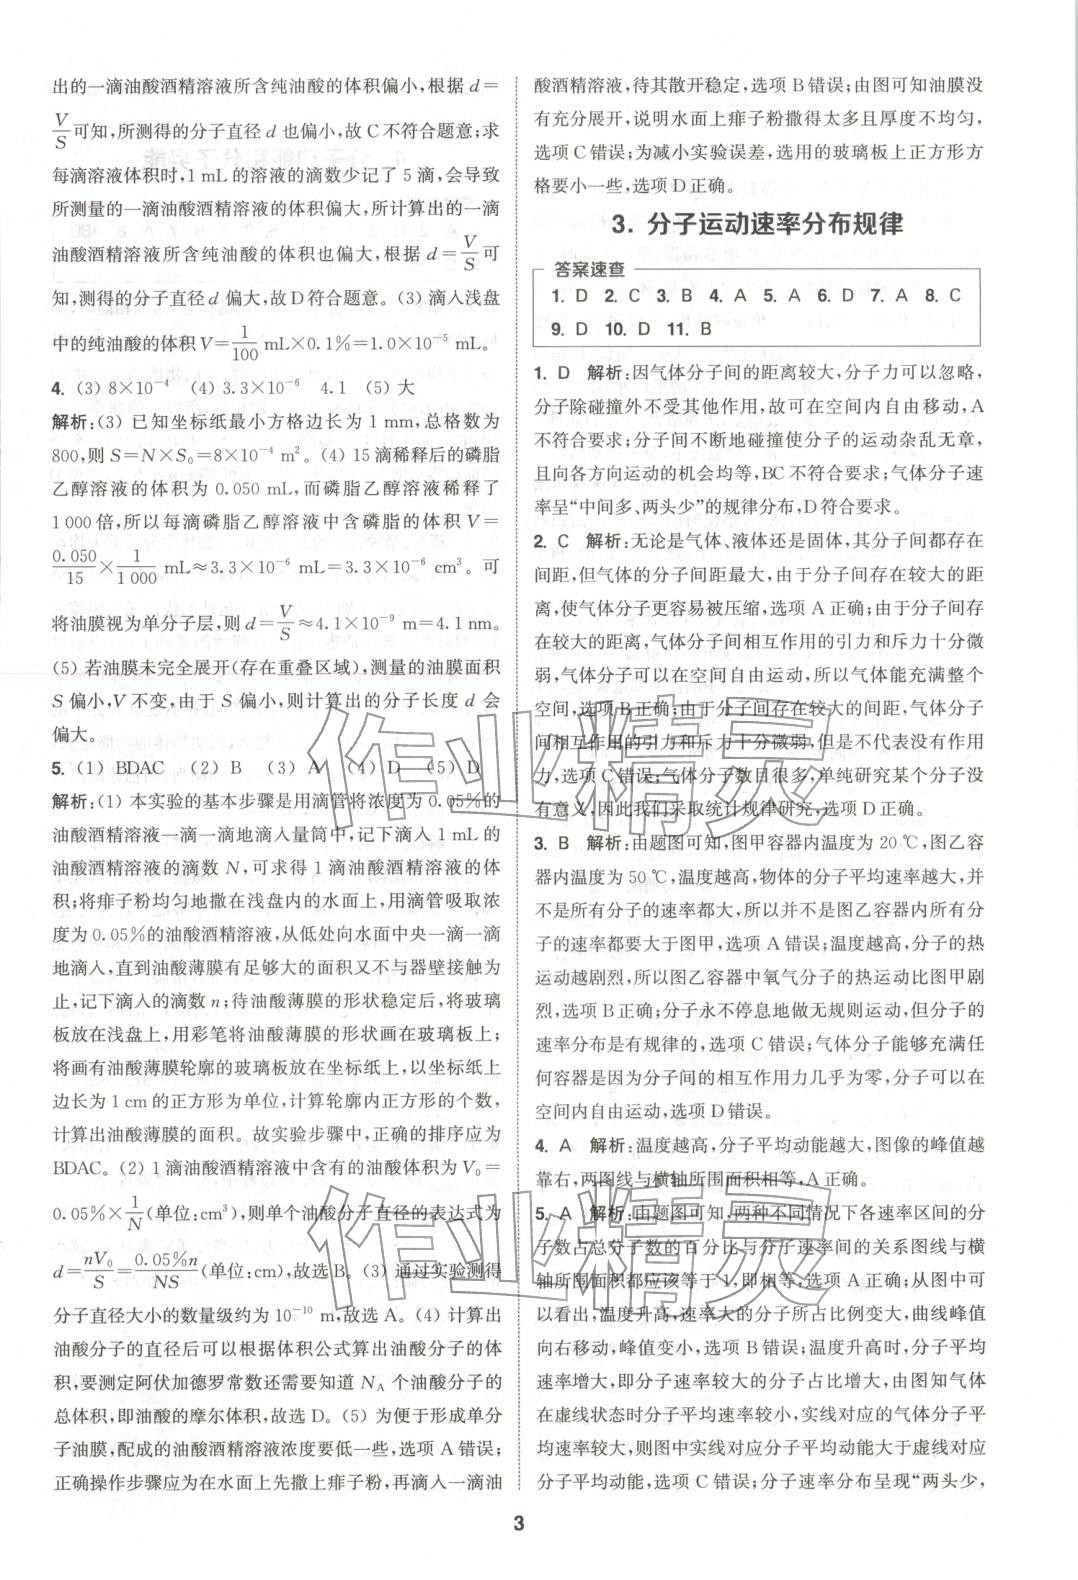 出的一滴油酸酒精溶液所含纯油酸的体积偏小，根据 d=
V/S 可知，所测得的分子直径 d 也偏小，故 C 不符合题意；求
每滴溶液体积时，1 mL 的溶液的滴数少记了 5 滴，会导致
所测量的一滴油酸酒精溶液的体积偏大，所计算出的一滴
油酸酒精溶液所含纯油酸的体积也偏大，根据 d=V/S 可
知，测得的分子直径 d 偏大，故 D 符合题意。(3) 滴入浅盘
中的纯油酸的体积 V=1/100 mL×0.1%=1.0×10⁻⁵ mL。
4. (3) 8×10⁻⁴ (4) 3.3×10⁻⁶ 4.1 (5) 大
解析：(3) 已知坐标纸最小方格边长为 1 mm，总格数为
800，则 S=N×S₀=8×10⁻⁴ m²。(4) 15 滴稀释后的磷脂
乙醇溶液的体积为 0.050 mL，而磷脂乙醇溶液稀释了
1 000 倍，所以每滴磷脂乙醇溶液中含磷脂的体积 V=
0.050/15×1/1 000 mL≈3.3×10⁻⁶ mL=3.3×10⁻⁶ cm³。可
将油膜视为单分子层，则 d=V/S≈4.1×10⁻⁹ m=4.1 nm。
(5) 若油膜未完全展开(存在重叠区域)，测量的油膜面积
S 偏小，V 不变，由于 S 偏小，则计算出的分子长度 d 会
偏大。
5. (1) BDAC (2) B (3) A (4) D (5) D
解析：(1) 本实验的基本步骤是用滴管将浓度为 0.05%的
油酸酒精溶液一滴一滴地滴入量筒中，记下滴入 1 mL 的
油酸酒精溶液的滴数 N，可求得 1 滴油酸酒精溶液的体
积；将痱子粉均匀地撒在浅盘内的水面上，用滴管吸取浓
度为 0.05%的油酸酒精溶液，从低处向水面中央一滴一滴
地滴入，直到油酸薄膜有足够大的面积又不与器壁接触为
止，记下滴入的滴数 n；待油酸薄膜的形状稳定后，将玻璃
板放在浅盘上，用彩笔将油酸薄膜的形状画在玻璃板上；
将画有油酸薄膜轮廓的玻璃板放在坐标纸上，以坐标纸上
边长为 1 cm 的正方形为单位，计算轮廓内正方形的个数，
计算出油酸薄膜的面积。故实验步骤中，正确的排序应为
BDAC。(2) 1 滴油酸酒精溶液中含有的油酸体积为 V₀=
0.05%×1/N(单位：cm³)，则单个油酸分子直径的表达式为
d=nV₀/S=0.05%n/NS(单位：cm)，故选 B。(3) 通过实验测得
分子直径大小的数量级约为 10⁻¹⁰ m，故选 A。(4) 计算出
油酸分子的直径后可以根据体积公式算出油酸分子的体
积，要测定阿伏加德罗常数还需要知道 N_A 个油酸分子的
总体积，即油酸的摩尔体积，故选 D。(5) 为便于形成单分
子油膜，配成的油酸酒精溶液浓度要低一些，选项 A 错误；
正确操作步骤应为在水面上先撒上痱子粉，再滴入一滴油
酸酒精溶液，待其散开稳定，选项 B 错误；由图可知油膜没
有充分展开，说明水面上痱子粉撒得太多且厚度不均匀，
选项 C 错误；为减小实验误差，选用的玻璃板上正方形方
格要小一些，选项 D 正确。
3. 分子运动速率分布规律
答案速查
1. D 2. C 3. B 4. A 5. A 6. D 7. A 8. C
9. D 10. D 11. B
1. D 解析：因气体分子间的距离较大，分子力可以忽略，
分子除碰撞外不受其他作用，故可在空间内自由移动，A
不符合要求；分子间不断地碰撞使分子的运动杂乱无章，
且向各方向运动的机会均等，BC 不符合要求；气体分子速
率呈“中间多、两头少”的规律分布，D 符合要求。
2. C 解析：无论是气体、液体还是固体，其分子间都存在
间距，但气体的分子间距最大，由于分子间存在较大的距
离，使气体分子更容易被压缩，选项 A 正确；由于分子间存
在较大的距离，气体分子间相互作用的引力和斥力十分微
弱，气体分子可以在空间自由运动，所以气体能充满整个
空间，选项 B 正确；由于分子间存在较大的间距，气体分子
间相互作用的引力和斥力十分微弱，但是不代表没有作用
力，选项 C 错误；气体分子数目很多，单纯研究某个分子没
有意义，因此我们采取统计规律研究，选项 D 正确。
3. B 解析：由题图可知，图甲容器内温度为 20 ℃，图乙容
器内温度为 50 ℃，温度越高，物体的分子平均速率越大，并
不是所有分子的速率都大，所以并不是图乙容器内所有分
子的速率都要大于图甲，选项 A 错误；温度越高，分子的热
运动越剧烈，所以图乙容器中氧气分子的热运动比图甲剧
烈，选项 B 正确；分子永不停息地做无规则运动，但分子的
速率分布是有规律的，选项 C 错误；气体分子能够充满任
何容器是因为分子间的相互作用力几乎为零，分子可以在
空间内自由运动，选项 D 错误。
4. A 解析：温度越高，分子平均动能越大，图像的峰值越
靠右，两图线与横轴所围面积相等，A 正确。
5. A 解析：由题图可知，两种不同情况下各速率区间的分
子数占总分子数的百分比与分子速率间的关系图线与横
轴所围面积都应该等于 1，即相等，选项 A 正确；从图中可
以看出，温度升高，速率大的分子所占比例变大，曲线峰值
向右移动，峰值变小，选项 B 错误；温度升高时，分子平均
速率变大，即分子速率较大的分子占比增大，由图知气体
在虚线状态时分子平均速率较小，实线对应的气体分子平
均速率较大，则图中实线对应的分子平均动能大于虚线对应的
分子平均动能，选项 C 错误；分子速率分布呈现“两头少，
3
作业精灵
作业精灵